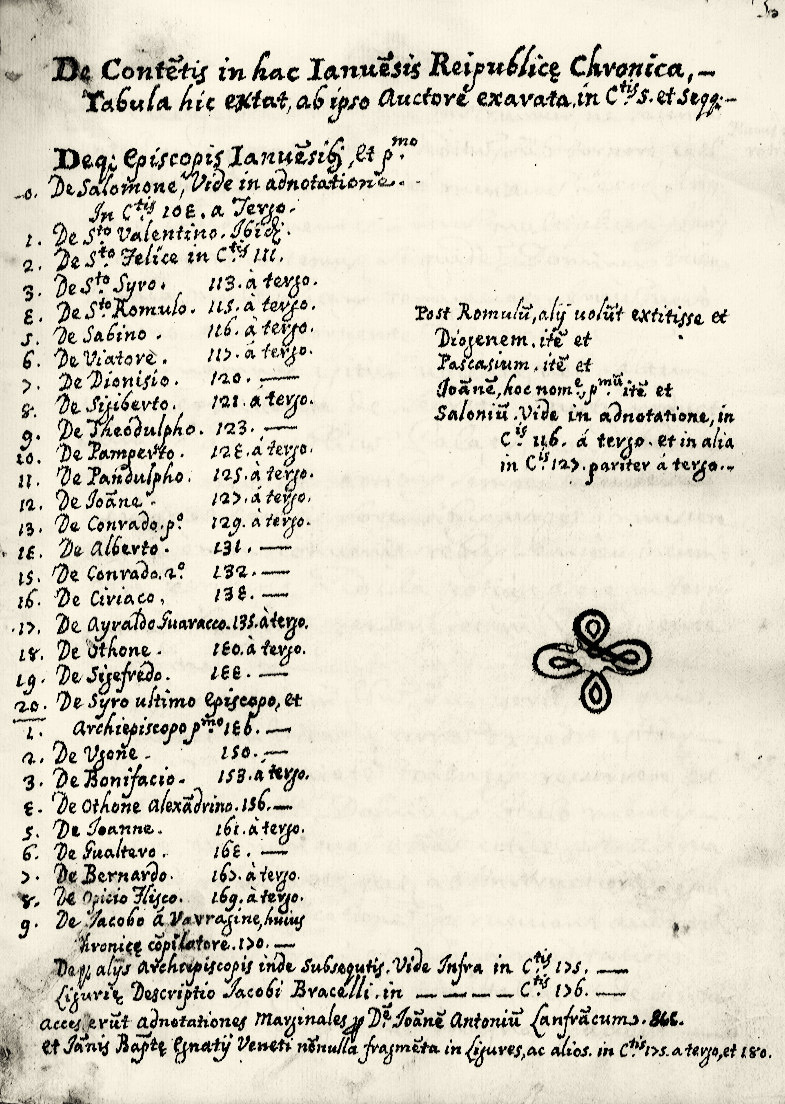 De Contẽtis in hac Ianuẽsis Reipublicę Chronica, –
Tabula hic extat, ab ipso Auctore exavata, in C^tis 5. et seqq; –
Deq; Episcopis Ianuẽsib; et p^mo.
0. De Salomone, Vide in adnotatione.
In C^tis 104. a Tergo.
1. De S^to Valentino. Ibid;
2. De S^to Felice in C^tis 111.
3. De S^to Syro. 113. à tergo.
4. De S^to Romulo. 115. à tergo.
5. De Sabino. 116. à tergo.
6. De Viatore. 117. à tergo.
7. De Dionisio. 120. —
8. De Sigiberto. 121. à tergo.
9. De Theodulpho. 123. —
10. De Pamperto. 124. à tergo.
11. De Pandulpho. 125. à tergo.
12. De Ioãne. 127. à tergo.
13. De Conrado. p.º 129. à tergo.
14. De Alberto. 131. —
15. De Conrado. 2º 132. —
16. De Ciriaco. 134. —
17. De Ayraldo Guaracco. 135. à tergo.
18. De Othone. 140. à tergo.
19. De Sigefredo. 144. —
20. De Syro ultimo Episcopo, et
1. Archiepiscopo p^mo 146. —
2. De Vgone. 150. —
3. De Bonifacio. 153. à tergo.
4. De Othone Alexãdrino. 156. —
5. De Ioanne. 161. à tergo.
6. De Gualtero. 164. —
7. De Bernardo. 167. à tergo.
8. De Opicio Flisco. 169. à tergo.
9. De Jacobo á Varragine, huius
Chronicę cõpilatore. 170. —
De q; alijs Archiepiscopis inde Subsequtis. Vide Infra in C^tis 175. —
Ligurię Descriptio Iacobi Bracelli. in — — — — C^tis 176. —
Acceserũt Adnotationes Marginales p D. Ioãnẽ Antoniũ Lanfrãcum.
et Iãnis Baptę Egnatij Veneti nõnulla fragmẽta in Ligures, ac alios. in C^tis 175. a tergo, et 180.
Post Romulũ, alij uolũt extitisse et
Diogenem. itẽ et
Pascasium. itẽ et
Joãnẽ, hoc nomẽ p^mũ itẽ et
Saloniũ. Vide in adnotatione, in
C^is 116. á tergo. et in alia
in C^is 127. pariter á tergo. –